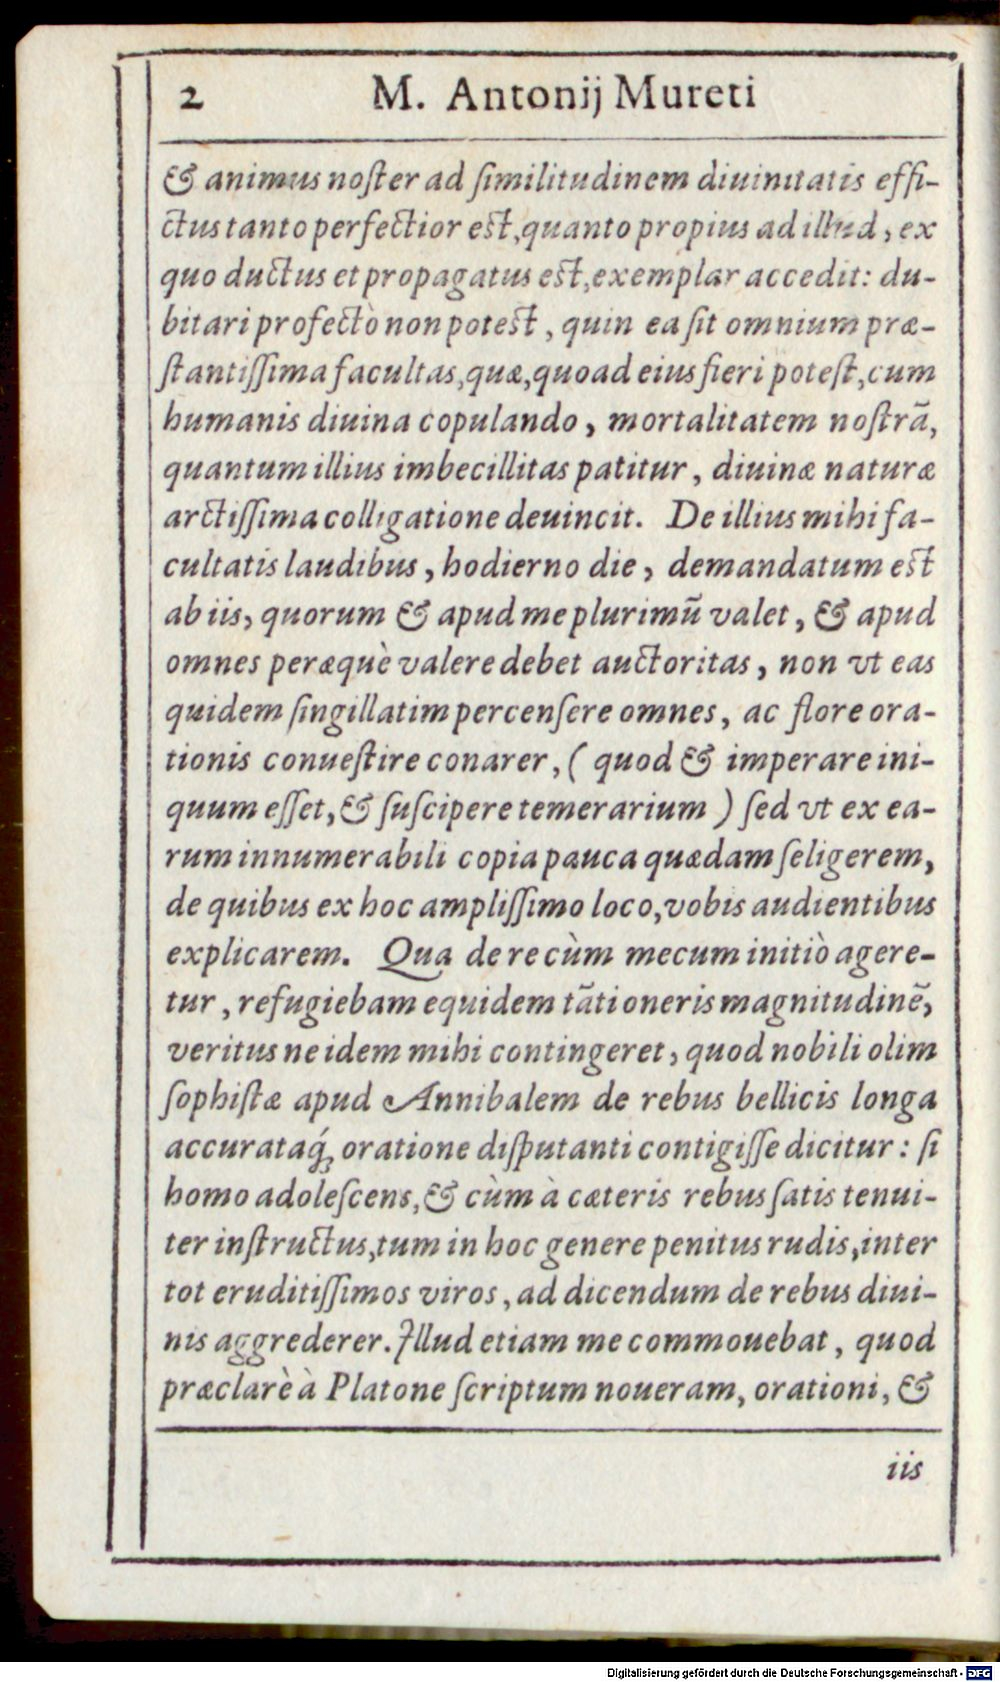 2 M. Antonij Mureti
& animus noſter ad ſimilitudinem diuinitatis effi-
ctus tanto perfectior est, quanto propius ad illud, ex
quo ductus et propagatus est, exemplar accedit: du-
bitari profectò non potest, quin ea ſit omnium præ-
ſtantiſſima facultas, quæ, quoad eius fieri poteſt, cum
humanis diuina copulando, mortalitatem noſtrã,
quantum illius imbecillitas patitur, diuinæ naturæ
arctiſſima colligatione deuincit. De illius mihi fa-
cultatis laudibus, hodierno die, demandatum est
ab iis, quorum & apud me plurimũ valet, & apud
omnes peræquè valere debet auctoritas, non vt eas
quidem ſingillatim percenſere omnes, ac flore ora-
tionis conueſtire conarer, ( quod & imperare ini-
quum eſſet, & ſuſcipere temerarium ) ſed vt ex ea-
rum innumerabili copia pauca quædam ſeligerem,
de quibus ex hoc ampliſſimo loco, vobis audientibus
explicarem. Qua de re cùm mecum initiò agere-
tur, refugiebam equidem tãti oneris magnitudinẽ,
veritus ne idem mihi contingeret, quod nobili olim
ſophiſtæ apud Annibalem de rebus bellicis longa
accurataq́; oratione diſputanti contigiſſe dicitur: ſi
homo adoleſcens, & cùm à cæteris rebus ſatis tenui-
ter inſtructus, tum in hoc genere penitus rudis, inter
tot eruditiſſimos viros, ad dicendum de rebus diui-
nis aggrederer. Illud etiam me commouebat, quod
præclarè à Platone ſcriptum noueram, orationi, &
iis
Digitalisierung gefördert durch die Deutsche Forschungsgemeinschaft - DFG